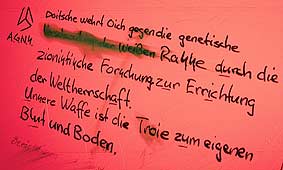 Doitsche wehrt Oich gegen die genetische
AGNM.
der Weißen Rasse durch die
zionistische Forschung zur Errichtung
der Weltherrschaft.
Unsere Waffe ist die Troie zum eigenen
Blut und Boden.